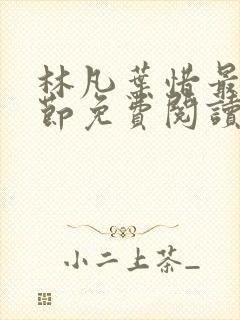 林凡葉惜最
節免費閱讀
小二上茶_